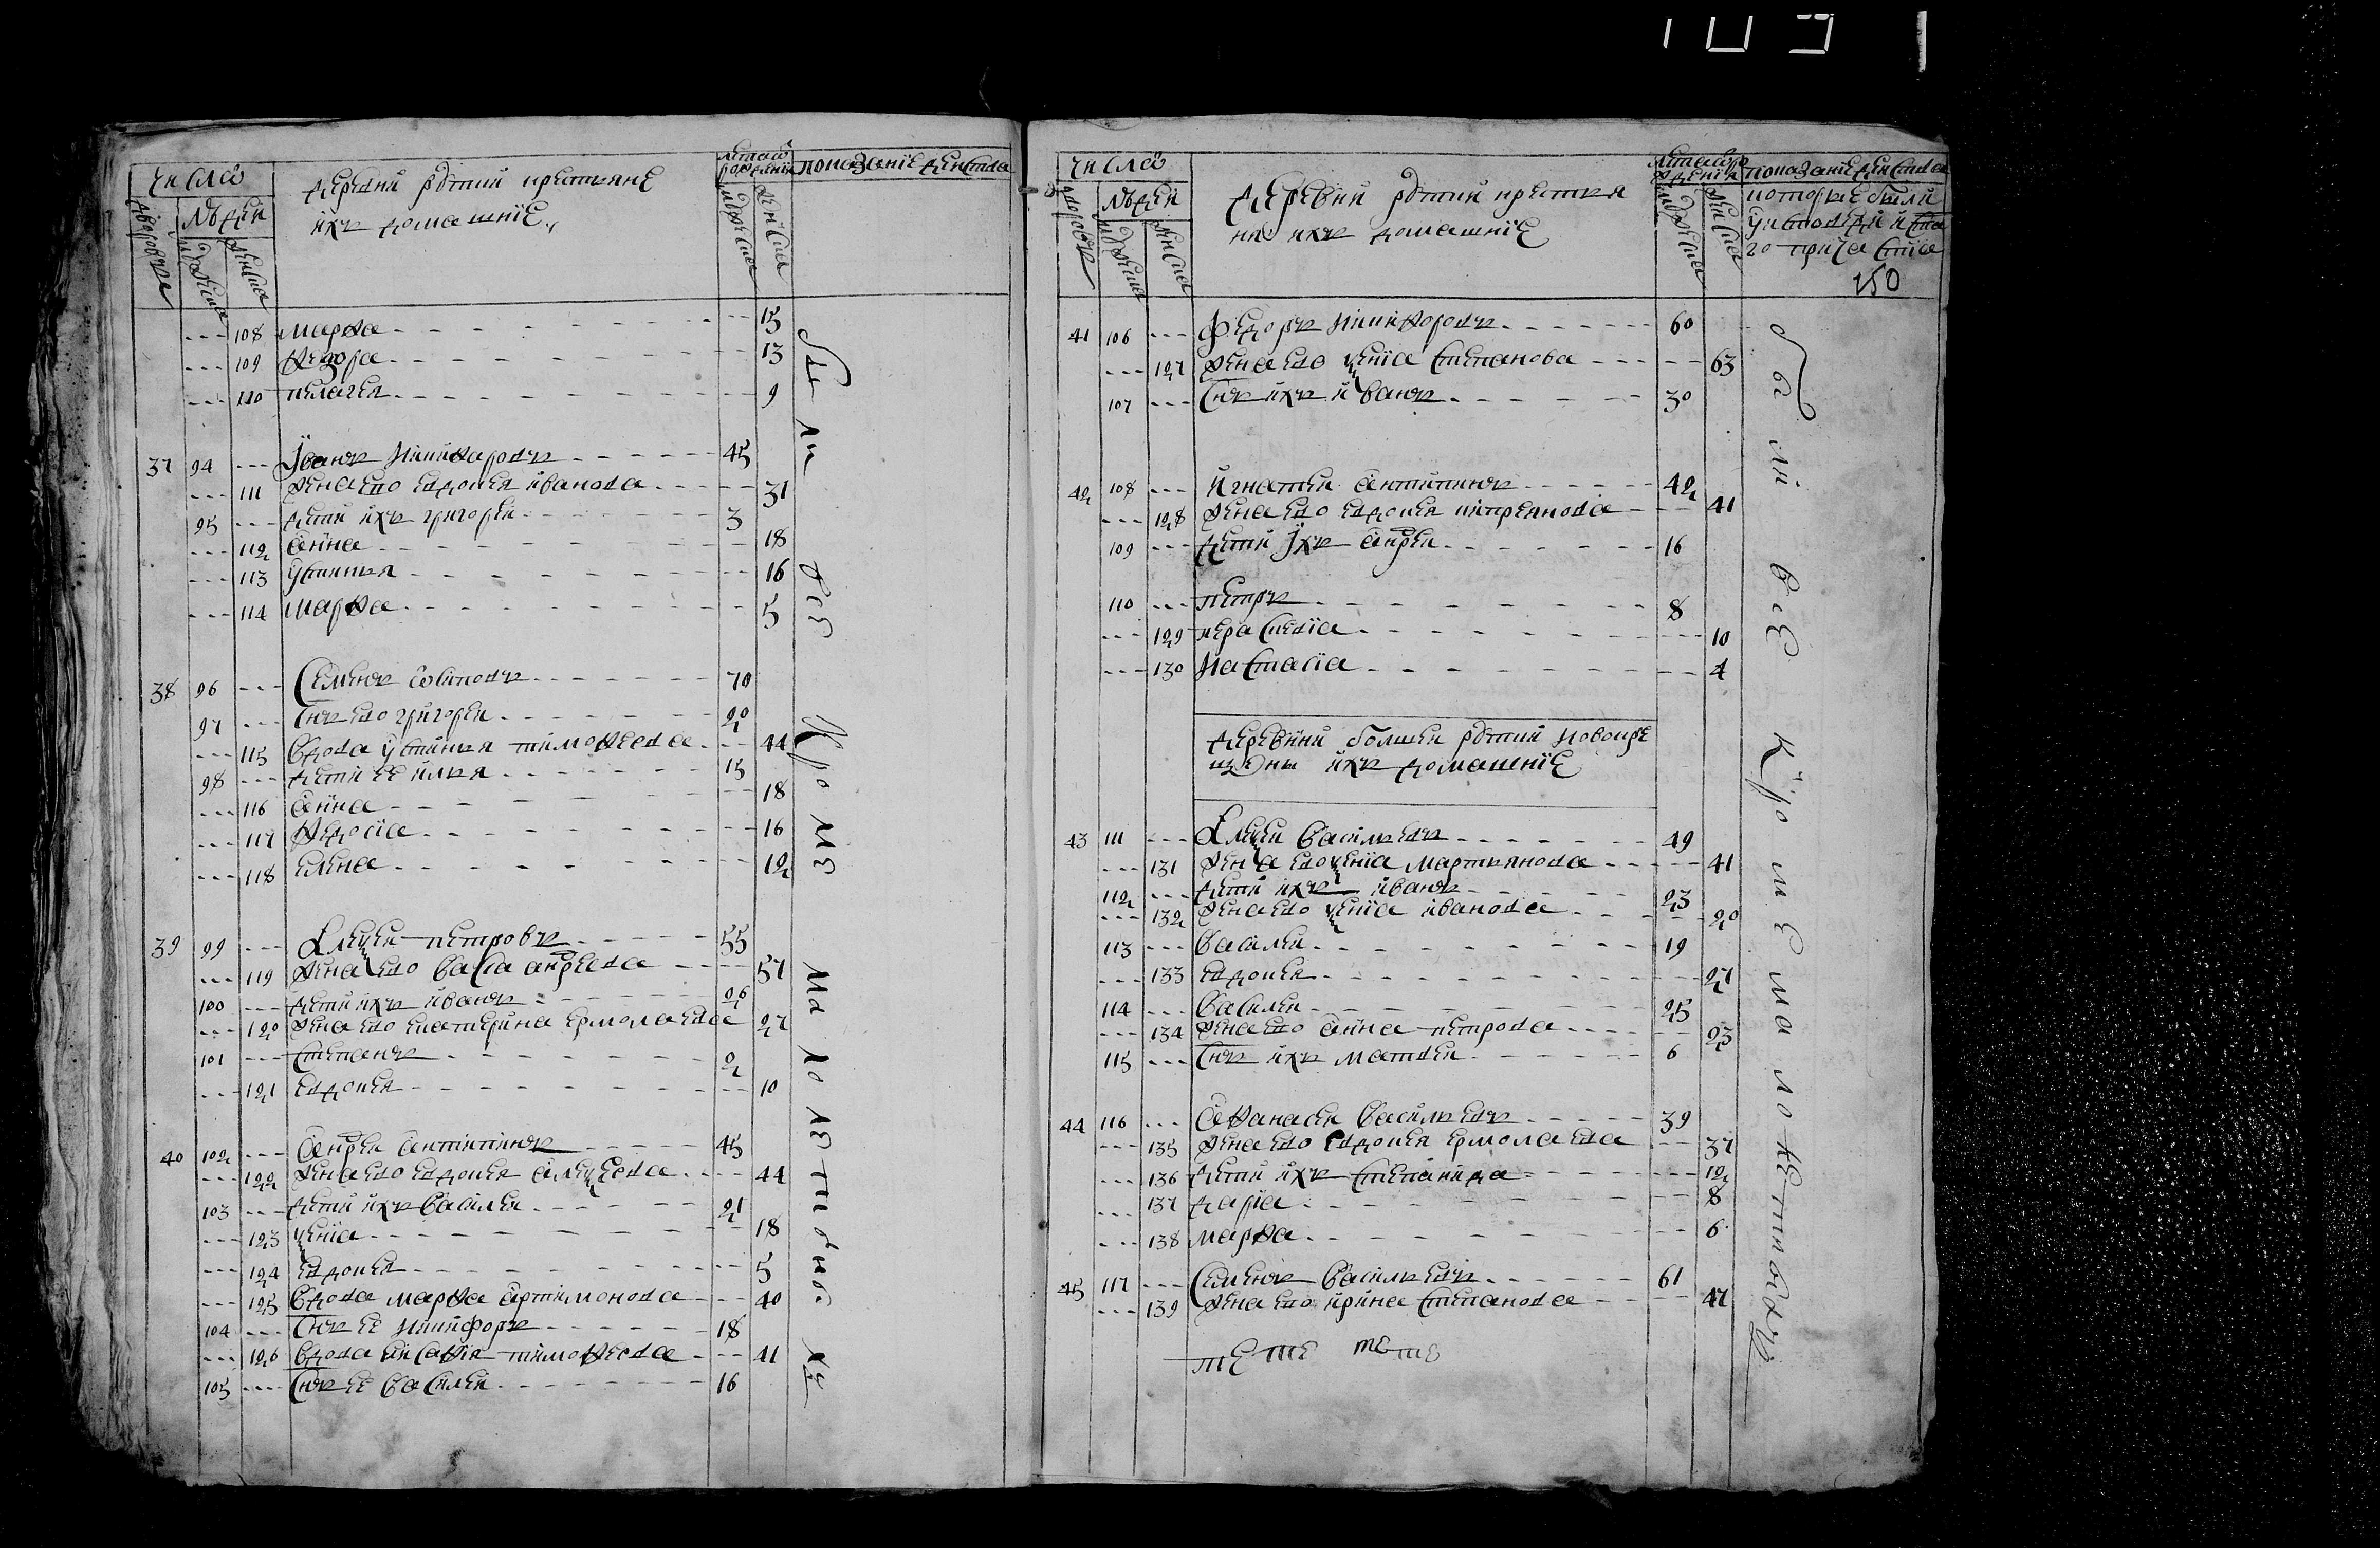 число
людей
дворовъ
мужеска
женска
деревни Рѣтки крестьяне
ихъ домашние
лета от рождения
мужеска
женска
показание действа
--- 108 марѳа --- 15
--- 109 ѳедора --- 13
--- 110 пелагея --- 9
37 94 --- Иванъ Никиѳаровъ --- 45
--- 111 жена ево евдокея иванова --- 31
95 --- дети ихъ григорей --- 3
--- 112 анна --- 18
--- 113 устинья --- 16
--- 114 марѳа --- 5
38 96 --- Семенъ --- 70
97 --- Снъ ево григорей --- 20
--- 115 вдова устинья тимоѳеева --- 44
98 --- дети ее илья --- 15
--- 116 анна --- 18
--- 117 ѳедосиа --- 16
--- 118 елена --- 12
39 99 --- Алеѯей петровъ --- 55
--- 119 жена ево васса андреева --- 57
100 --- дети ихъ иванъ --- 26
--- 120 жена ево екатерина ермолаева 27
101 --- степанъ --- 2
--- 121 евдокея --- 10
40 102 --- Андрей антипинъ --- 45
--- 122 жена ево евдокея алеѯеева --- 44
103 --- дети ихъ василей --- 21
--- 123 ѯениа --- 18
--- 124 евдокея --- 5
--- 125 вдова марѳа артимонова --- 40
104 --- Снъ ее никифоръ --- 18
--- 126 вдова тимоѳеева --- 41
105 --- Снъ ее василей --- 16
были все кроме малолетныхъ
число
людей
дворовъ
мужеска
женска
деревни Рѣтки крестья
не ихъ домашние
лета от рождения
мужеска
женска
показание действа
которые были
у исповеди и свята
го причастиа
150
41 106 --- Федоръ Никиѳоровъ --- 60
--- 127 жена ево ѯениа степанова --- 63
107 --- Снъ ихъ иванъ --- 30
42 108 --- Игнатей антипинъ --- 42
--- 128 жена ево евдокея киприанова --- 41
109 --- дети ихъ андрей --- 16
110 --- петръ --- 8
--- 129 парасковиа --- 10
--- 130 Настасиа --- 4
деревни болшей Рѣтки новокре
щены ихъ домашние
43 111 --- Алеѯей васильевъ --- 49
--- 131 жена ево ѯениа мартьянова --- 41
112 --- дети ихъ иванъ --- 23
--- 132 жена ево ѯениа иванова --- 20
113 --- василей --- 19
--- 133 евдокея --- 27
114 --- василей --- 25
--- 134 жена ево анна петрова --- 23
115 --- снъ ихъ матвей --- 6
44 116 --- Аѳанасей васильевъ --- 39
--- 135 жена ево евдокея ермолаева --- 37
--- 136 дети ихъ степанида --- 12
--- 137 дариа --- 8
--- 138 марѳа --- 6
45 117 --- Семенъ васильевъ --- 61
--- 139 жена ево ирина степанова --- 47
те те те те
были все кроме малолетныхъ